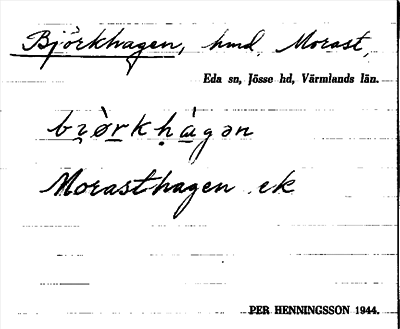 Björkhagen, hmd, Morast,
Eda sn, Jösse hd, Värmlands län.
bi̯ò̱rkḥà̱gən
Morasthagen ek
PER HENNINGSSON 1944.